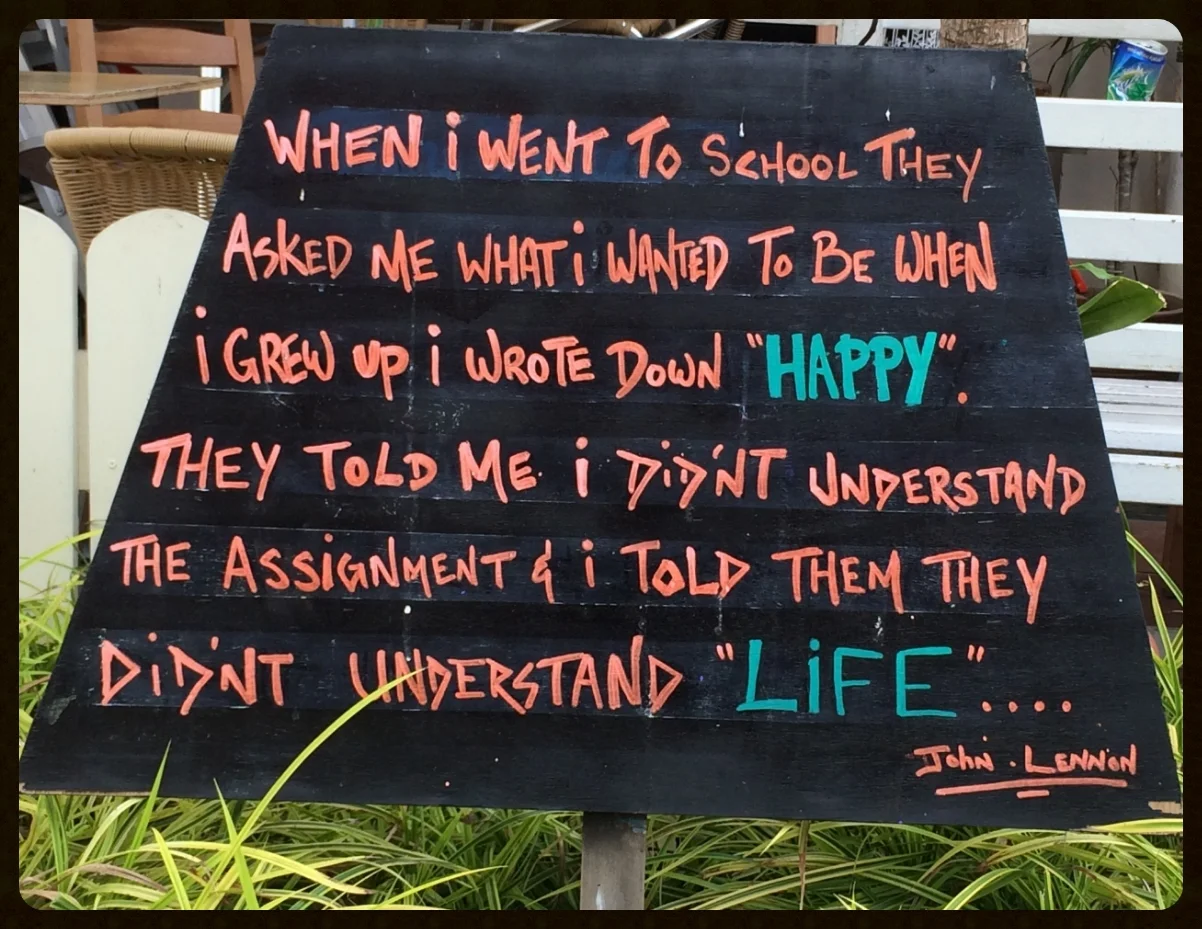 WHEN i WENT TO SCHOOL THEY
ASKED ME WHAT i WANTED TO BE WHEN
i GREW UP i WROTE DOWN "HAPPY".
THEY TOLD ME i DiD'NT UNDERSTAND
THE ASSiGNMENT & i TOLD THEM THEY
DiD'NT UNDERSTAND "LiFE"....
John . LENNON